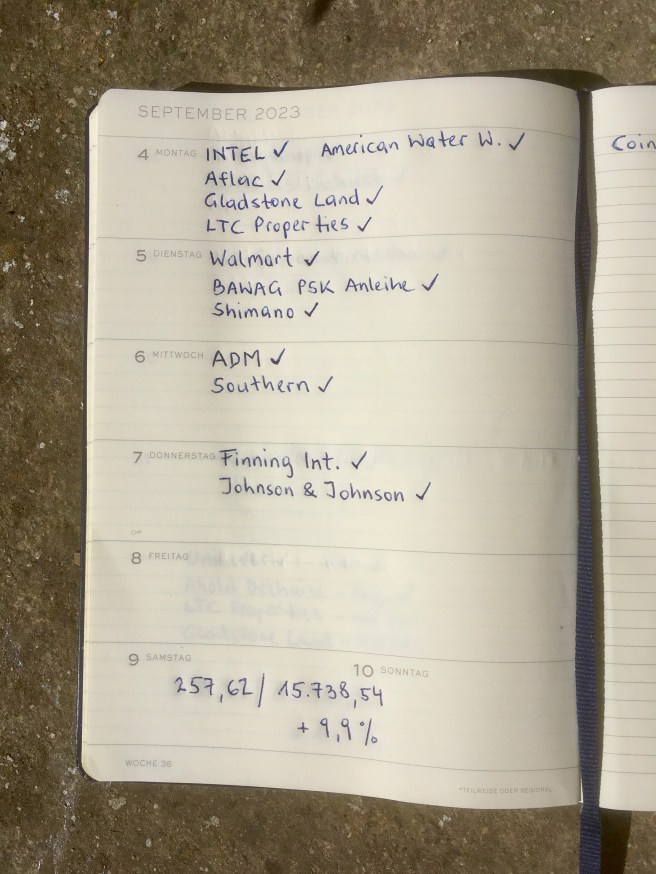 SEPTEMBER 2023
4 MONTAG INTEL ✓ American Water W. ✓
Aflac ✓
Gladstone Land ✓
LTC Properties ✓
5 DIENSTAG Walmart ✓
BAWAG PSK Anleihe ✓
Shimano ✓
6 MITTWOCH ADM ✓
Southern ✓
7 DONNERSTAG Finning Int. ✓
Johnson & Johnson ✓
8 FREITAG
9 SAMSTAG
10 SONNTAG
257,62 / 15.738,54
+ 9,9%
WOCHE 36
*TEILWEISE ODER REGIONAL
Coin